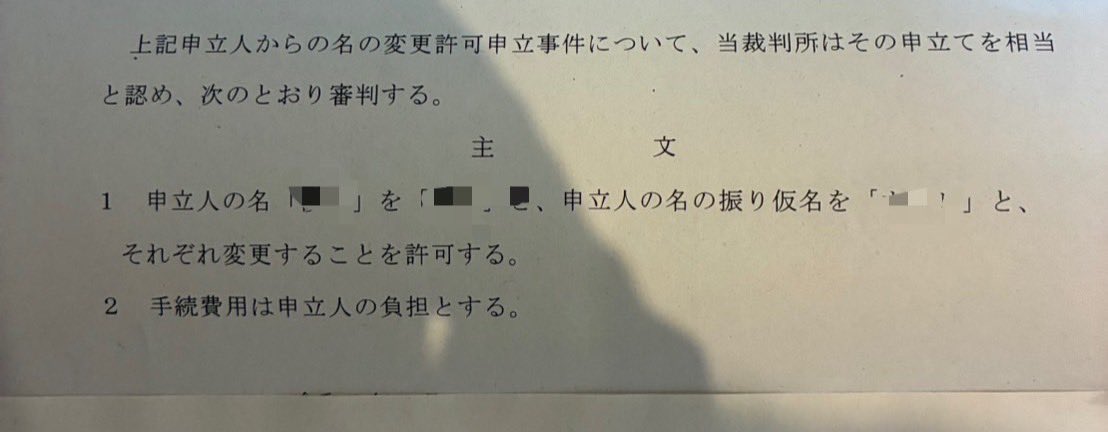 上記申立人からの名の変更許可申立事件について、当裁判所はその申立てを相当
と認め、次のとおり審判する。
主 文
1 申立人の名「」を「」と、申立人の名の振り仮名を「」と、
それぞれ変更することを許可する。
2 手続費用は申立人の負担とする。